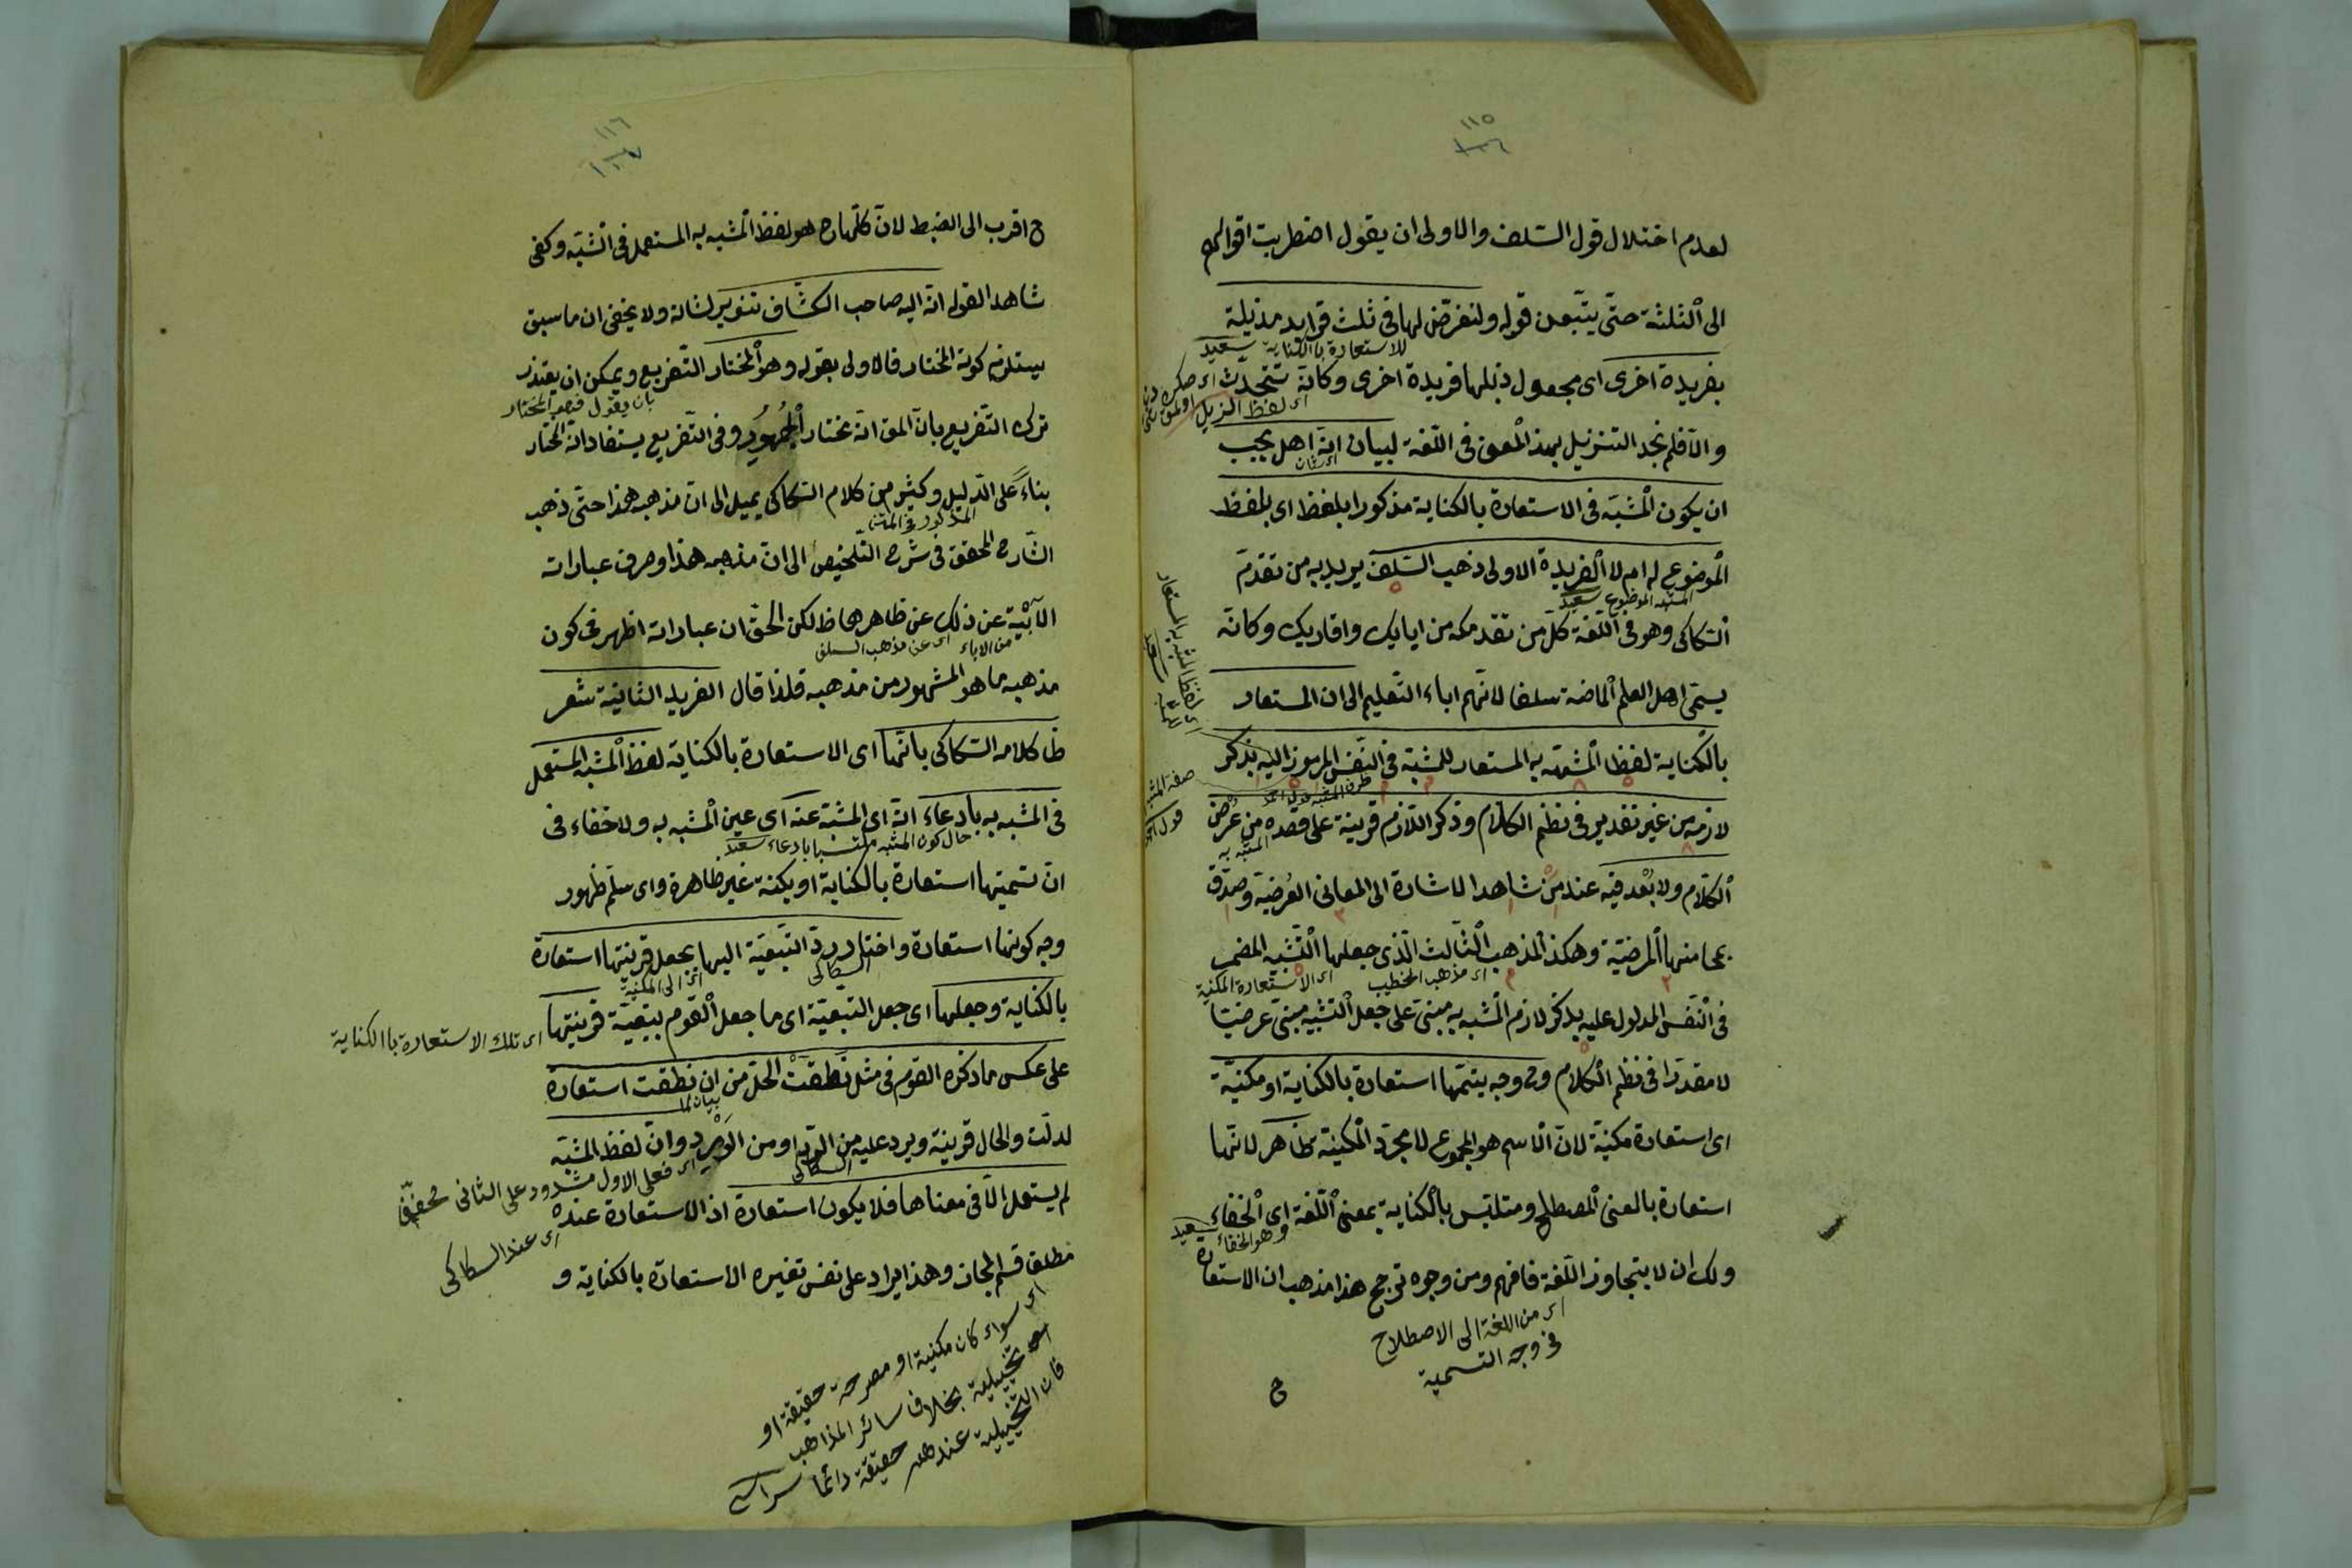 ١١٥
لعدم اختلال قول السّلف والاولى ان يقول اضطربت اقوالهم
الى الثلثة حتّى يتّبعن قوله ولنفرّض لها فى ثلث فرايد مذيلة
للاستعارة بالكناية سعيد
بفريدة اخرى اى مجعول ذيلها فريدة اخرى وكانّه
اى لفظ الزيل
والّا فلم نجد التنزيل بهذ المعنى فى اللّغة لبيان انّه هل يجب
اى شان
ان يكون المشبّه فى الاستعارة بالكناية مذكورا بلفظ اى بلفظ
الموضوع له ام لا الفريدة الاولى ذهب السّلف يريد به من تقدّم
المشبه الموضوع سعيد
السّكاكى وهو فى اللّغة كلّ من تقدمك من ابايك واقاربك وكانّه
يسمّى اهل العلم الماضه سلفا لانّهم اباء التّعليم الى ان المستعار
بالكناية لفظ المشبّه به المستعار للمشبّه فى النّفس المرموز اليه بذكر
لازمه من غير تقدير فى نظم الكلام وذكر اللّازم قرينة على قصده من عرض
المشبه به
الكلام ولا بُعْد فيه عند من شاهد الاشارة الى المعانى العُرضيّة وصدّق
بمحامنها المرضيّة وهكذ المذهب الثّالث الّذى جعلها التّشبيه المضمر
اى مذهب الخطيب
اى الاستعارة المكنية
فى النّفس المدلول عليه بذكر لازم المشبه به مبنىّ على جعل التشبيه مبنىّ عرضيّا
لا مقدّرا فى نظم الكلام وح وجه يتمّها استعارة بالكناية او مكنيّة
اى استعارة مكنيّة لانّ الاسم هو المجموع لا مجرّد المكنية ظاهر لانّها
استعارة بالمعنى المصطلح ومتلبّس بالكناية بمعنى اللّغة اى الخفاء
وهو الخفاء سعيد
ولك ان لا يتجاوز اللّغة فافهم ومن وجوه ترجيح هذا مذهب ان الاستعارة
اى من اللغة الى الاصطلاح
فى وجه التسمية
ح
اى لفظ المشبه به المستعار
للمشبه سعيد
صفة المشبه
١١٦
ح اقرب الى الضبط لانّ كلّها ح هو لفظ المشبه به المستعمل فى المشبّه وكفى
شاهدا لقوله انّه اليه صاحب الكشّاف تنوير لشانه ولا يخفى ان ما سبق
يستلزم كونه المختار فالاولى بقوله وهو المختار التّفريع ويمكن ان يعتذر
بان يقول فهو المختار
ترك التّفريع بانّ المق انّه مختار الجُمهُور وفى التّفريع يستفاد انّه المختار
بناءً على الدّليل وكثير من كلام السّكاكى يميل الى انّ مذهبه هذا حتّى ذهب
المذكور فى المتن
الشّارح المحقق فى شرح التّلخيص الى انّ مذهبه هذا وصرف عباراته
الآبيّة عن ذلك عن ظاهرها ظ لكن الحقّ ان عباراته اظهر فى كون
من الاباء اى عن مذهب السلف
مذهبه ما هو المشهور من مذهبه فلذا قال الفريد الثانية شعر
ظا كلامه السّكاكى بانّها اى الاستعارة بالكناية لفظ المشبّه المستعمل
فى المشبه به بادعاء انّه اى المشبّه عنه اى عين المشبه به ولا خفاء فى
حال كون المشبه ملتبسا بادعاء سعيد
انّ تسميتها استعارة بالكناية او يكنة غير ظاهرة واى سلّم ظهور
وجه كونها استعارة واختار ردّ التّبعيّة اليها بجعل قرينتها استعارة
السكاكى
اى الى المكنية
بالكناية وجعلها اى جعل التّبعيّة اى ما جعل القوم بتبعيّة قرينتها
اى تلك الاستعارة باالكناية
على عكس ما ذكره القوم فى مثل نَطقَتْ الحال من ان نطقت استعارة
بيان لما
لدلّت والحال قرينة ويرد عليه من الردّ او من الوُرُود وانّ لفظ المشبّه
السكاكى
اى فعلى الاول مشدود على الثانى مخفّف
لم يستعمل الّا فى معناها فلا يكون استعارة اذ الاستعارة عنده
اى عند السكاكى
مطلقا قسم المجاز وهذا يراد على نفس تفسيره الاستعارة بالكناية و
اى سواء كان مكنية او مصرحة حقيقة او
تخييلية بخلاف سائر المذاهب
فان التخييلية عندهم حقيقة دائما